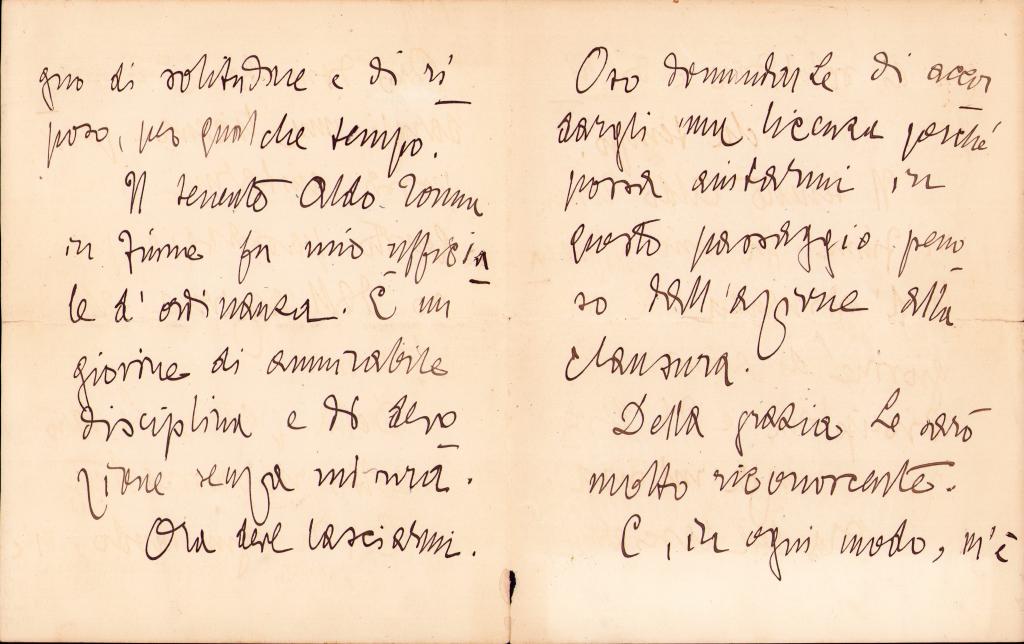 gno di solitudine e di ri
poso, per qualche tempo.
Il tenente Aldo
in Fiume fu mio ufficia
le d'ordinanza. È un
giovine di ammirabile
disciplina e di devo
zione senza misura.
Ora deve lasciarmi.
Oso domandarLe di accor
dargli una licenza perché
possa aiutarmi in
questo passaggio peno
so dall'azione alla
clausura.
Della grazia Le sarò
molto riconoscente.
E, in ogni modo, m'è